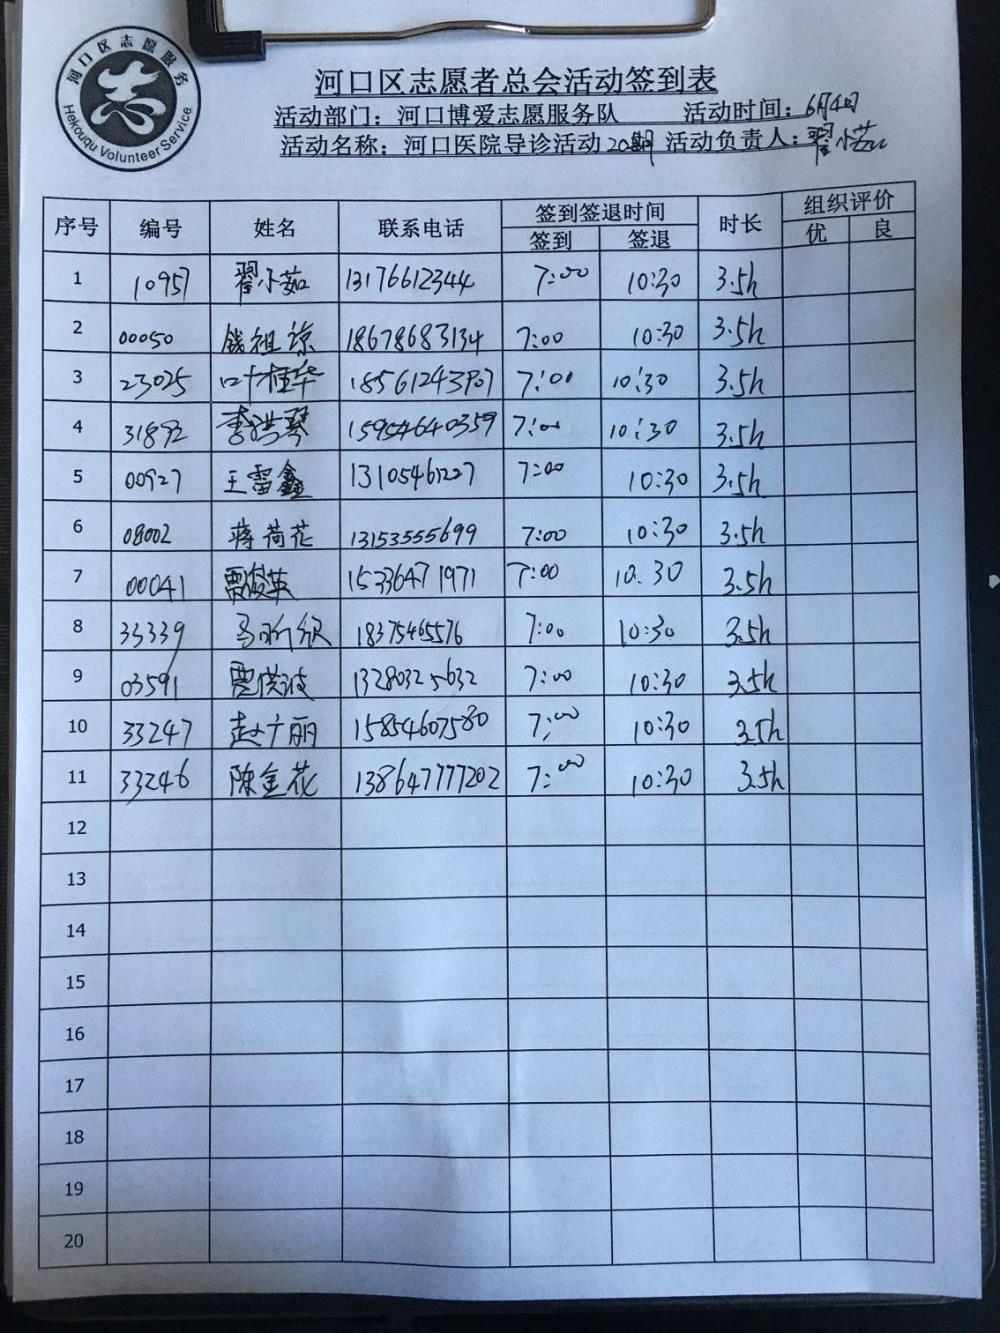 河口区志愿服务
志
Hekouqu Volunteer Service
河口区志愿者总会活动签到表
活动部门：河口博爱志愿服务队 活动时间：6月4日
活动名称：河口医院导诊活动20期 活动负责人：翟小茹
序号 编号 姓名 联系电话 签到签退时间 时长 组织评价
签到 签退 优 良
1 10957 翟小茹 13176612344 7:00 10:30 3.5h
2 00050 钱祖琼 18678683134 7:00 10:30 3.5h
3 23025 叶桂华 18561243907 7:00 10:30 3.5h
4 31892 李洪琴 15954640359 7:00 10:30 3.5h
5 00927 王雷鑫 13105461227 7:00 10:30 3.5h
6 08002 蒋荷花 13153555699 7:00 10:30 3.5h
7 00041 贾俊英 15336471971 7:00 10.30 3.5h
8 33339 马昕欣 18375465576 7:00 10:30 3.5h
9 03591 贾洪波 13280325632 7:00 10:30 3.5h
10 33247 赵广丽 15854607580 7:00 10:30 3.5h
11 33246 陈金花 138647777202 7:00 10:30 3.5h
12
13
14
15
16
17
18
19
20